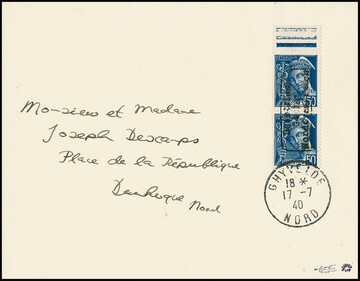 Monsieur et Madame
Joseph Descamps
Place de la République
Dunkerque Nord
50
50
GHYVELDE
18 *
17 - 7
40
NORD